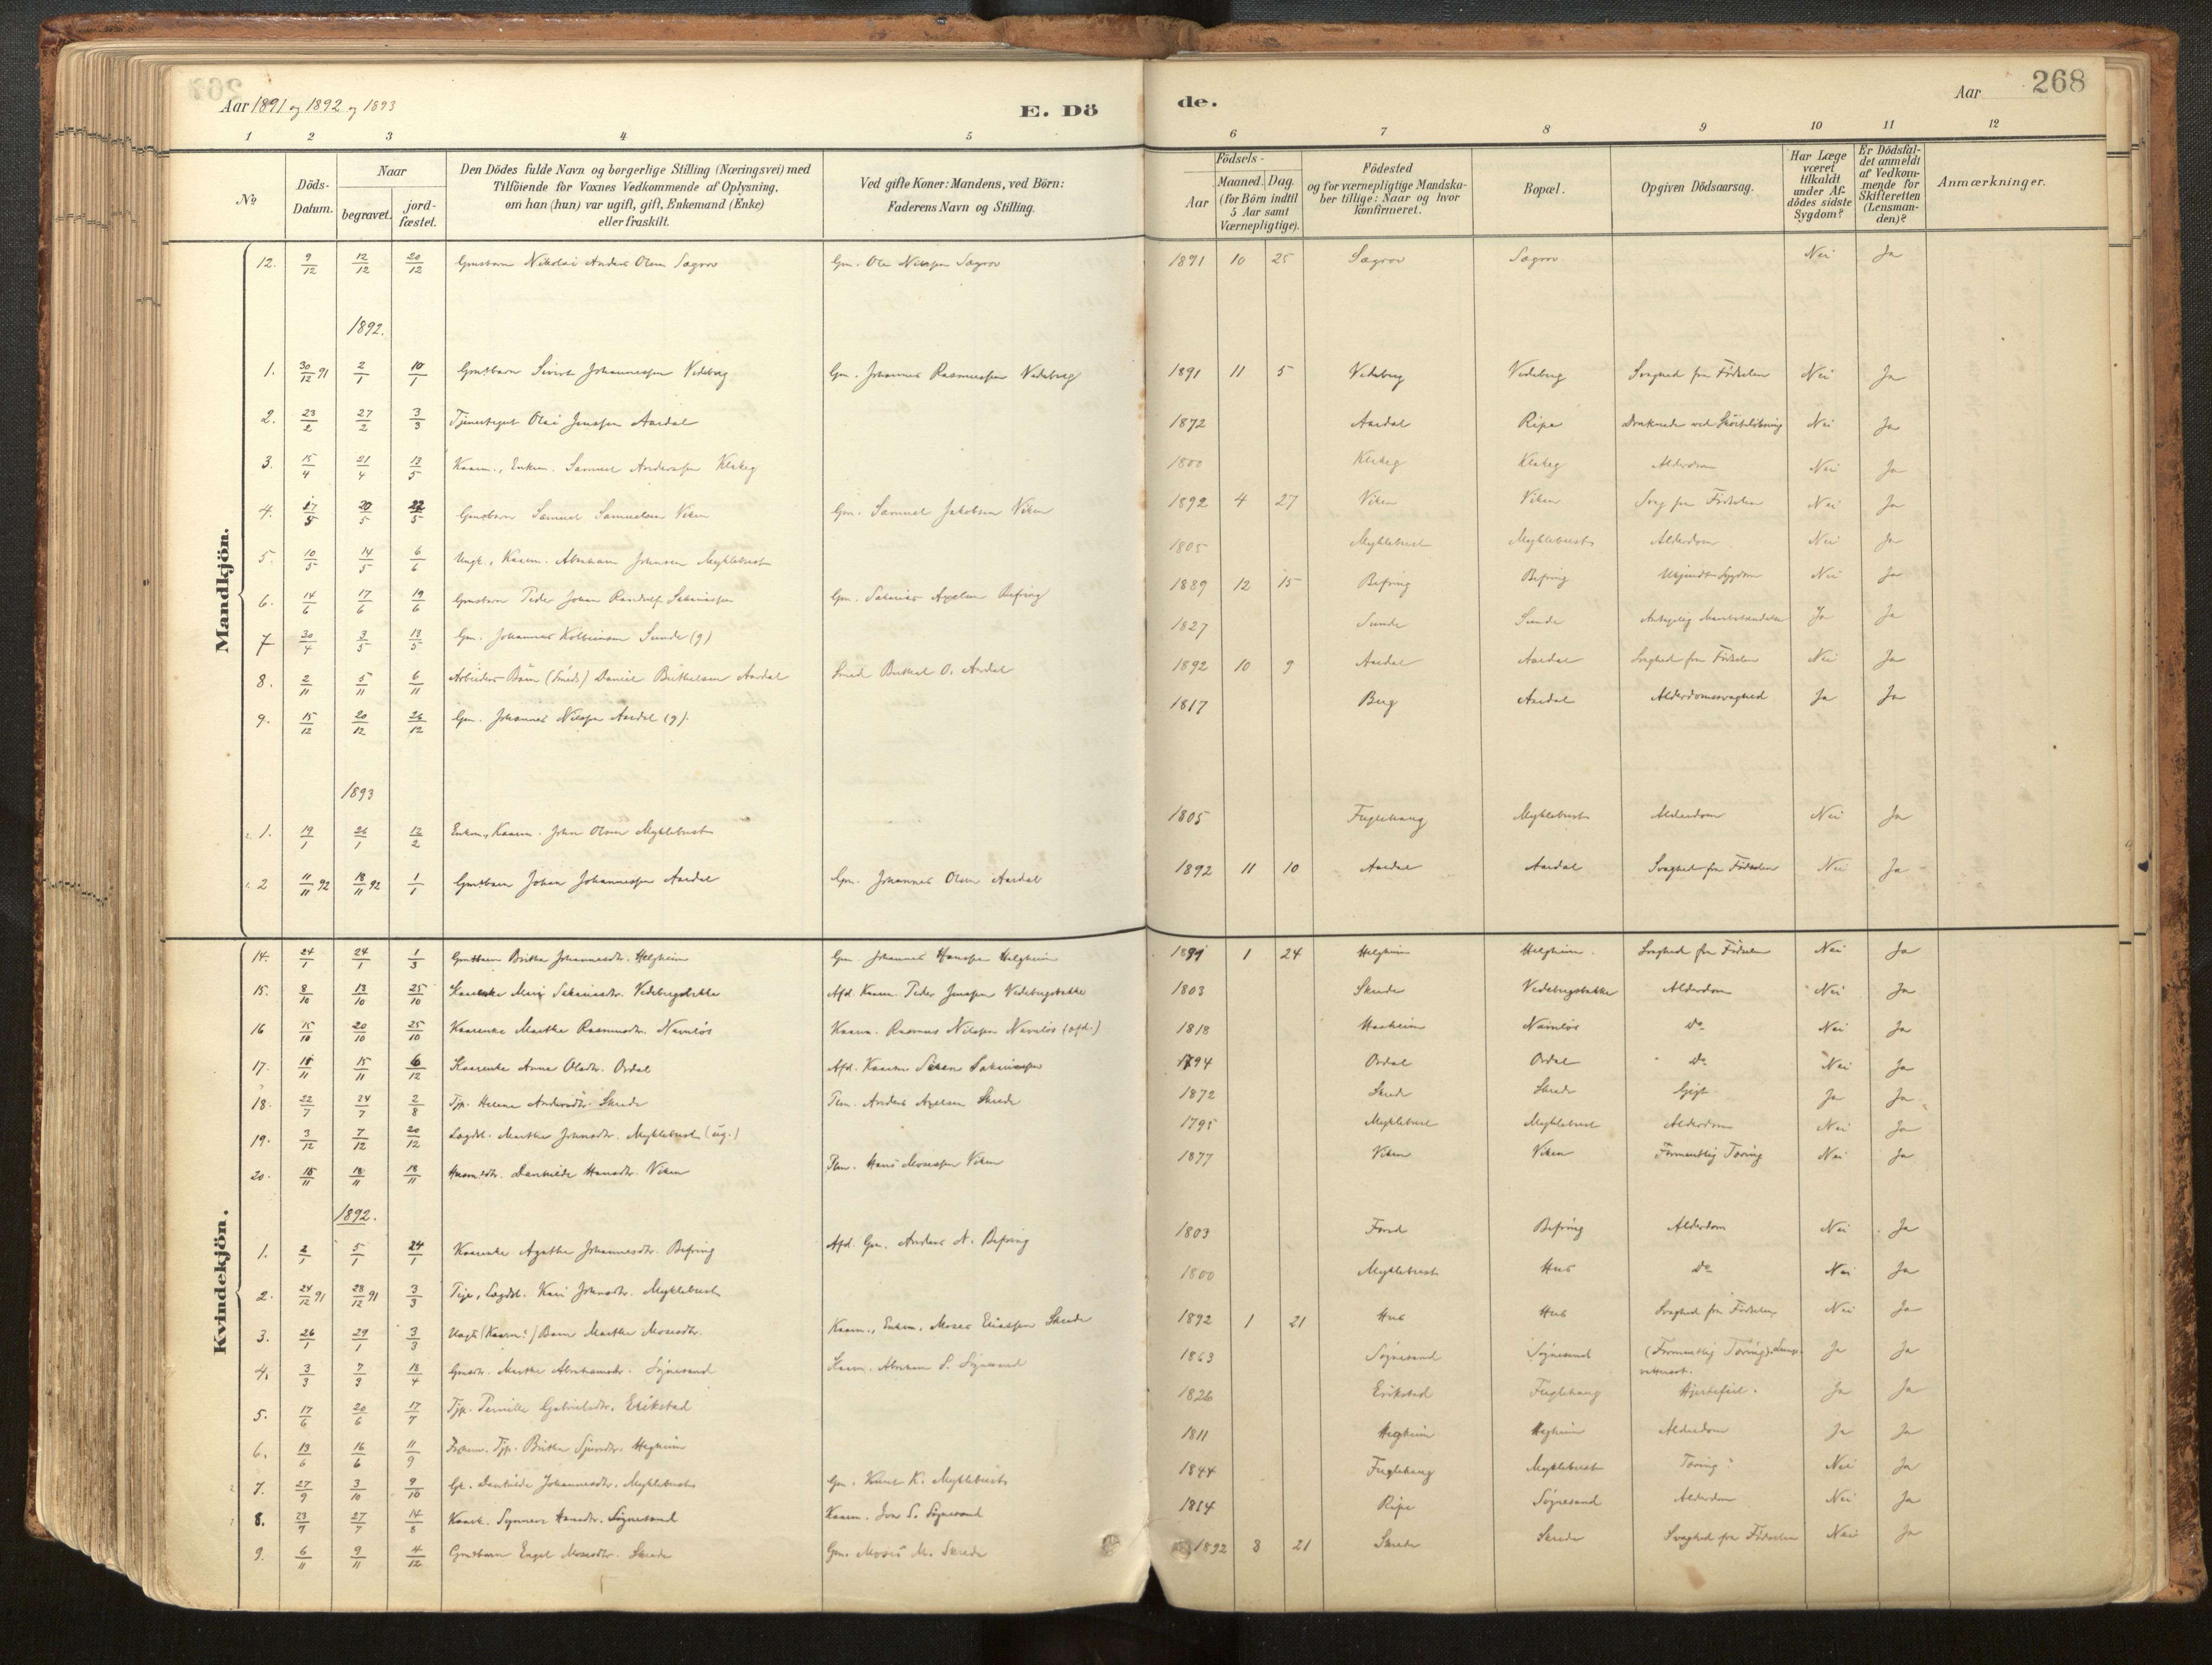 268
Aar 1891 og 1892 og 1893
E. Dö
de.
Aar
1 2 3 4 5 6 7 8 9 10 11 12
No
Döds-Datum.
Naar
begravet.
jord-fæstet.
Den Dödes fulde Navn og borgerlige Stilling (Næringsvei) med
Tilföiende for Voxnes Vedkommende af Oplysning,
om han (hun) var ugift, gift, Enkemand (Enke)
eller fraskilt.
Ved gifte Koner: Mandens, ved Börn:
Faderens Navn og Stilling.
Födsels-
Aar
Maaned. Dag.
(for Börn indtil
5 Aar samt
Værnepligtige).
Födested
og for værnepligtige Mandska-
ber tillige: Naar og hvor
konfirmeret.
Bopæl.
Opgiven Dödsaarsag.
Har Læge
været
tilkaldt
under Af-
dödes sidste
Sygdom?
Er Dödsfal-
det anmeldt
af Vedkom-
mende for
Skifteretten
(Lensman-
den)?
Anmærkninger.
Mandkjön.
12. 9/12 12/12 20/12 Gmsbarn Nikolai Anders Olsen Sægrov Gm. Ole Nilssen Sægrov 1891 10 25 Sægrov Sægrov Nei Ja
1892.
1. 30/12 91 2/1 10/1 Gmsbarn Sivert Johannessen Vedeberg Gm. Johannes Rasmussen Vedeberg 1891 11 5 Vedeberg Vedeberg Svaghed fra Födselen Nei Ja
2. 23/2 27/2 3/3 Tjenestegut Olai Jenssen Aardal 1872 Aardal Ripe Druknede ved Sköiteløbning Nei Ja
3. 15/4 21/4 13/5 Kaarm., Enkem. Samuel Anderssen Klakeg 1800 Klakeg Klakeg Alderdom Nei Ja
4. 17/5 20/5 22/5 Gmsbarn Samuel Samuelsen Viken Gm. Samuel Jakobsen Viken 1892 4 27 Viken Viken Svag fra Födselen Nei Ja
5. 10/5 14/5 6/6 Ungk., Kaarm. Abraham Johnsen Myklebust 1805 Myklebust Myklebust Alderdom Nei Ja
6. 14/6 17/6 19/6 Gmsbarn Peder Johan Randulf Sakariassen Gm. Sakarias Axelsen Befring 1889 12 15 Befring Befring Ukjendt Sygdom Nei Ja
7 30/4 3/5 13/5 Gm. Johannes Kolbeinsen Sunde (g) 1827 Sunde Sunde Ja Ja
8. 2/11 5/11 6/11 Arbeiders Barn (Smeds) Daniel Berthelsen Aardal Smed Berthel O. Aardal 1892 10 9 Aardal Aardal Svaghed fra Födselen Nei Ja
9. 15/12 20/12 26/12 Gm. Johannes Nilssen Aardal (g). 1817 Berg Aardal Alderdomssvaghed Ja Ja
1893
1. 19/1 26/1 12/2 Enkem., Kaarm. John Olsen Myklebust 1805 Fuglehaug Myklebust Alderdom Nei Ja
2 11/11 92 18/11 92 1/1 Gmsbarn Johan Johannessen Aardal Gm. Johannes Olsen Aardal 1892 11 10 Aardal Aardal Svaghed fra Födselen Nei Ja
Kvindekjön.
14. 24/1 24/1 1/3 Gmsbarn Brithe Johannesdtr. Helgheim Gm. Johannes Hanssen Helgheim 1891 1 24 Helgheim Helgheim. Svaghed fra Födselen Nei Ja
15. 8/10 13/10 25/10 Kaarenke Mari Sakariasdtr. Vedebergsbakke Afd. Kaarm. Peder Jenssen Vedebergsbakke 1803 Skrede Vedebergsbakke Alderdom Nei Ja
16 15/10 20/10 25/10 Kaarenke Marthe Rasmusdtr. Navnløs Kaarm. Rasmus Nilssen Navnløs (afd.) 1818 Navnløs Do Nei Ja
17. 15/11 6/12 Kaarenke Anna Olsdtr. Ordal Afd. Kaarm. Sakariassen 1794 Ordal Ordal Do Nei Ja
18. 22/7 24/7 2/8 Tjp. Helene Andersdtr. Skrede Pm. Anders Axelsen Skrede 1872 Skrede Skrede Gigt Ja Ja
19. 3/12 7/12 20/12 Lægdsl. Marthe Johnsdtr. Myklebust (ug.) 1795 Myklebust Myklebust Alderdom Nei Ja
20. 15/11 18/11 18/11 Husm:dtr. Danhilde Hansdtr. Viken Pm. Hans Mosessen Viken 1877 Viken Viken Formentlig Tæring Nei Ja
1892.
1. 2/1 5/1 24/1 Kaarenke Agathe Johannesdtr. Befring Afd. Gm. Anders A. Befring 1803 Førd Befring Alderdom Nei Ja
2. 24/12 91 28/12 91 3/3 Pige, Lægdsl. Kari Johnsdtr. Myklebust 1800 Myklebust Hus Do Nei Ja
3. 26/1 29/1 3/3 (Kaarm:) Barn Marthe Mosesdtr. Kaarm., Enkem. Moses Eliassen Skrede 1892 1 21 Hus Hus Svaghed fra Födselen Nei Ja
4. 3/3 7/3 18/4 Gmsdtr. Marthe Abrahamsdtr. Sögnesand Kaarm. Abraham S. Sögnesand 1863 Sögnesand Sögnesand (Formentlig Tæring). Ja Ja
5. 17/6 20/6 17/7 Tjp. Pernille Gabrielsdtr. Eikestad 1826 Eikestad Fuglehaug Hjertefeil. Ja Ja
6. 13/6 16/6 11/9 Tjp. Brithe Sjursdtr. Hegheim 1811 Hegheim Hegheim Alderdom Ja Ja
7. 27/9 3/10 9/10 Gk. Danhilde Johannesdtr. Myklebust Gm. Knut K. Myklebust 1844 Fuglehaug Myklebust Tæring? Nei Ja
8. 23/7 27/7 14/8 Kaark. Synneve Hansdtr. Sögnesand Kaarm. Ivar S. Sögnesand 1814 Ripe Sögnesand Alderdom Nei Ja
9. 6/11 9/11 4/12 Gmsbarn Engel Mosesdtr. Skrede Gm. Moses M. Skrede 1892 8 21 Skrede Skrede Svaghed fra Födselen Nei Ja